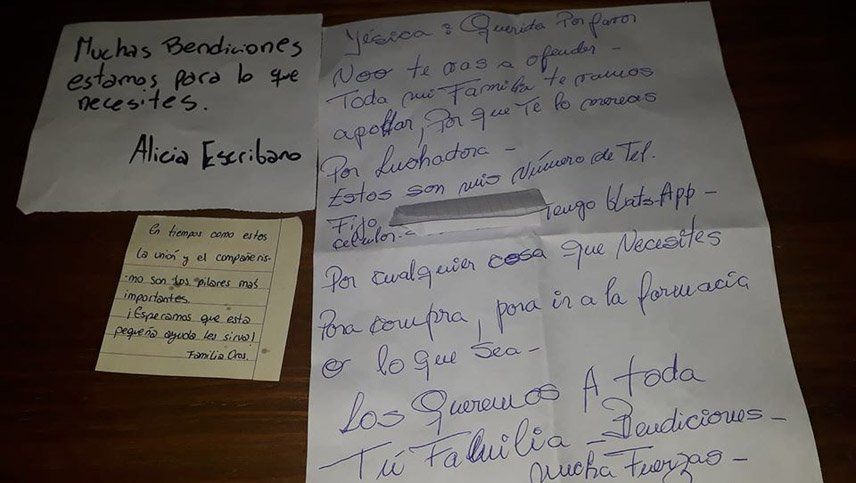 Muchas Bendiciones
estamos para lo que
necesites.
Alicia Escribano
En tiempos como estos
la unión y el compañeris-
mo son los pilares mas
importantes.
¡Esperamos que esta
pequeña ayuda les sirva!
Familia Oros.
Yésica: Querida Por favor
Noo te vas a ofender -
Toda mi Familia te vamos
apollar, Por que Te lo mereces
Por Luchadora -
Estos son mis Número de Tel.
Fijo Tengo WatsApp -
celular -
Por cualquier cosa que Necesites
Para compra, para ir a la farmacia
o lo que sea -
Los Queremos A toda
Tú Familia - Bendiciones -
Mucha Fuerzas -